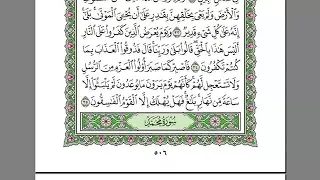 وَالْأَرْضَ وَلَمْ يَعْيَ بِخَلْقِهِنَّ بِقَادِرٍ عَلَىٰ أَن يُحْيِيَ الْمَوْتَىٰ بَلَىٰ
إِنَّهُ عَلَىٰ كُلِّ شَيْءٍ قَدِيرٌ ٣٣ وَيَوْمَ يُعْرَضُ الَّذِينَ كَفَرُوا عَلَى النَّارِ
أَلَيْسَ هَٰذَا بِالْحَقِّ قَالُوا بَلَىٰ وَرَبِّنَا قَالَ فَذُوقُوا الْعَذَابَ بِمَا
كُنتُمْ تَكْفُرُونَ ٣٤ فَاصْبِرْ كَمَا صَبَرَ أُولُو الْعَزْمِ مِنَ الرُّسُلِ
وَلَا تَسْتَعْجِل لَّهُمْ كَأَنَّهُمْ يَوْمَ يَرَوْنَ مَا يُوعَدُونَ لَمْ يَلْبَثُوا إِلَّا
سَاعَةً مِّن نَّهَارٍ بَلَاغٌ فَهَلْ يُهْلَكُ إِلَّا الْقَوْمُ الْفَاسِقُونَ ٣٥
سُورَةُ مُحَمَّدٍ
٥٠٦